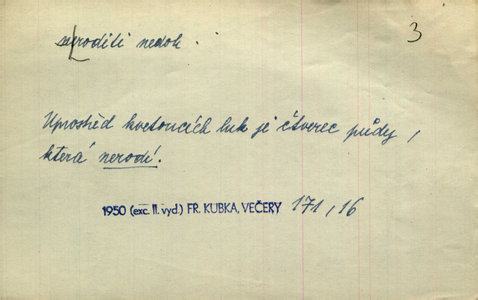 neroditi nedok.
3
Uprostřed kvetoucích luk je čtverec půdy,
která nerodí.
1950 (exc. II. vyd.) FR. KUBKA, VEČERY 171, 16